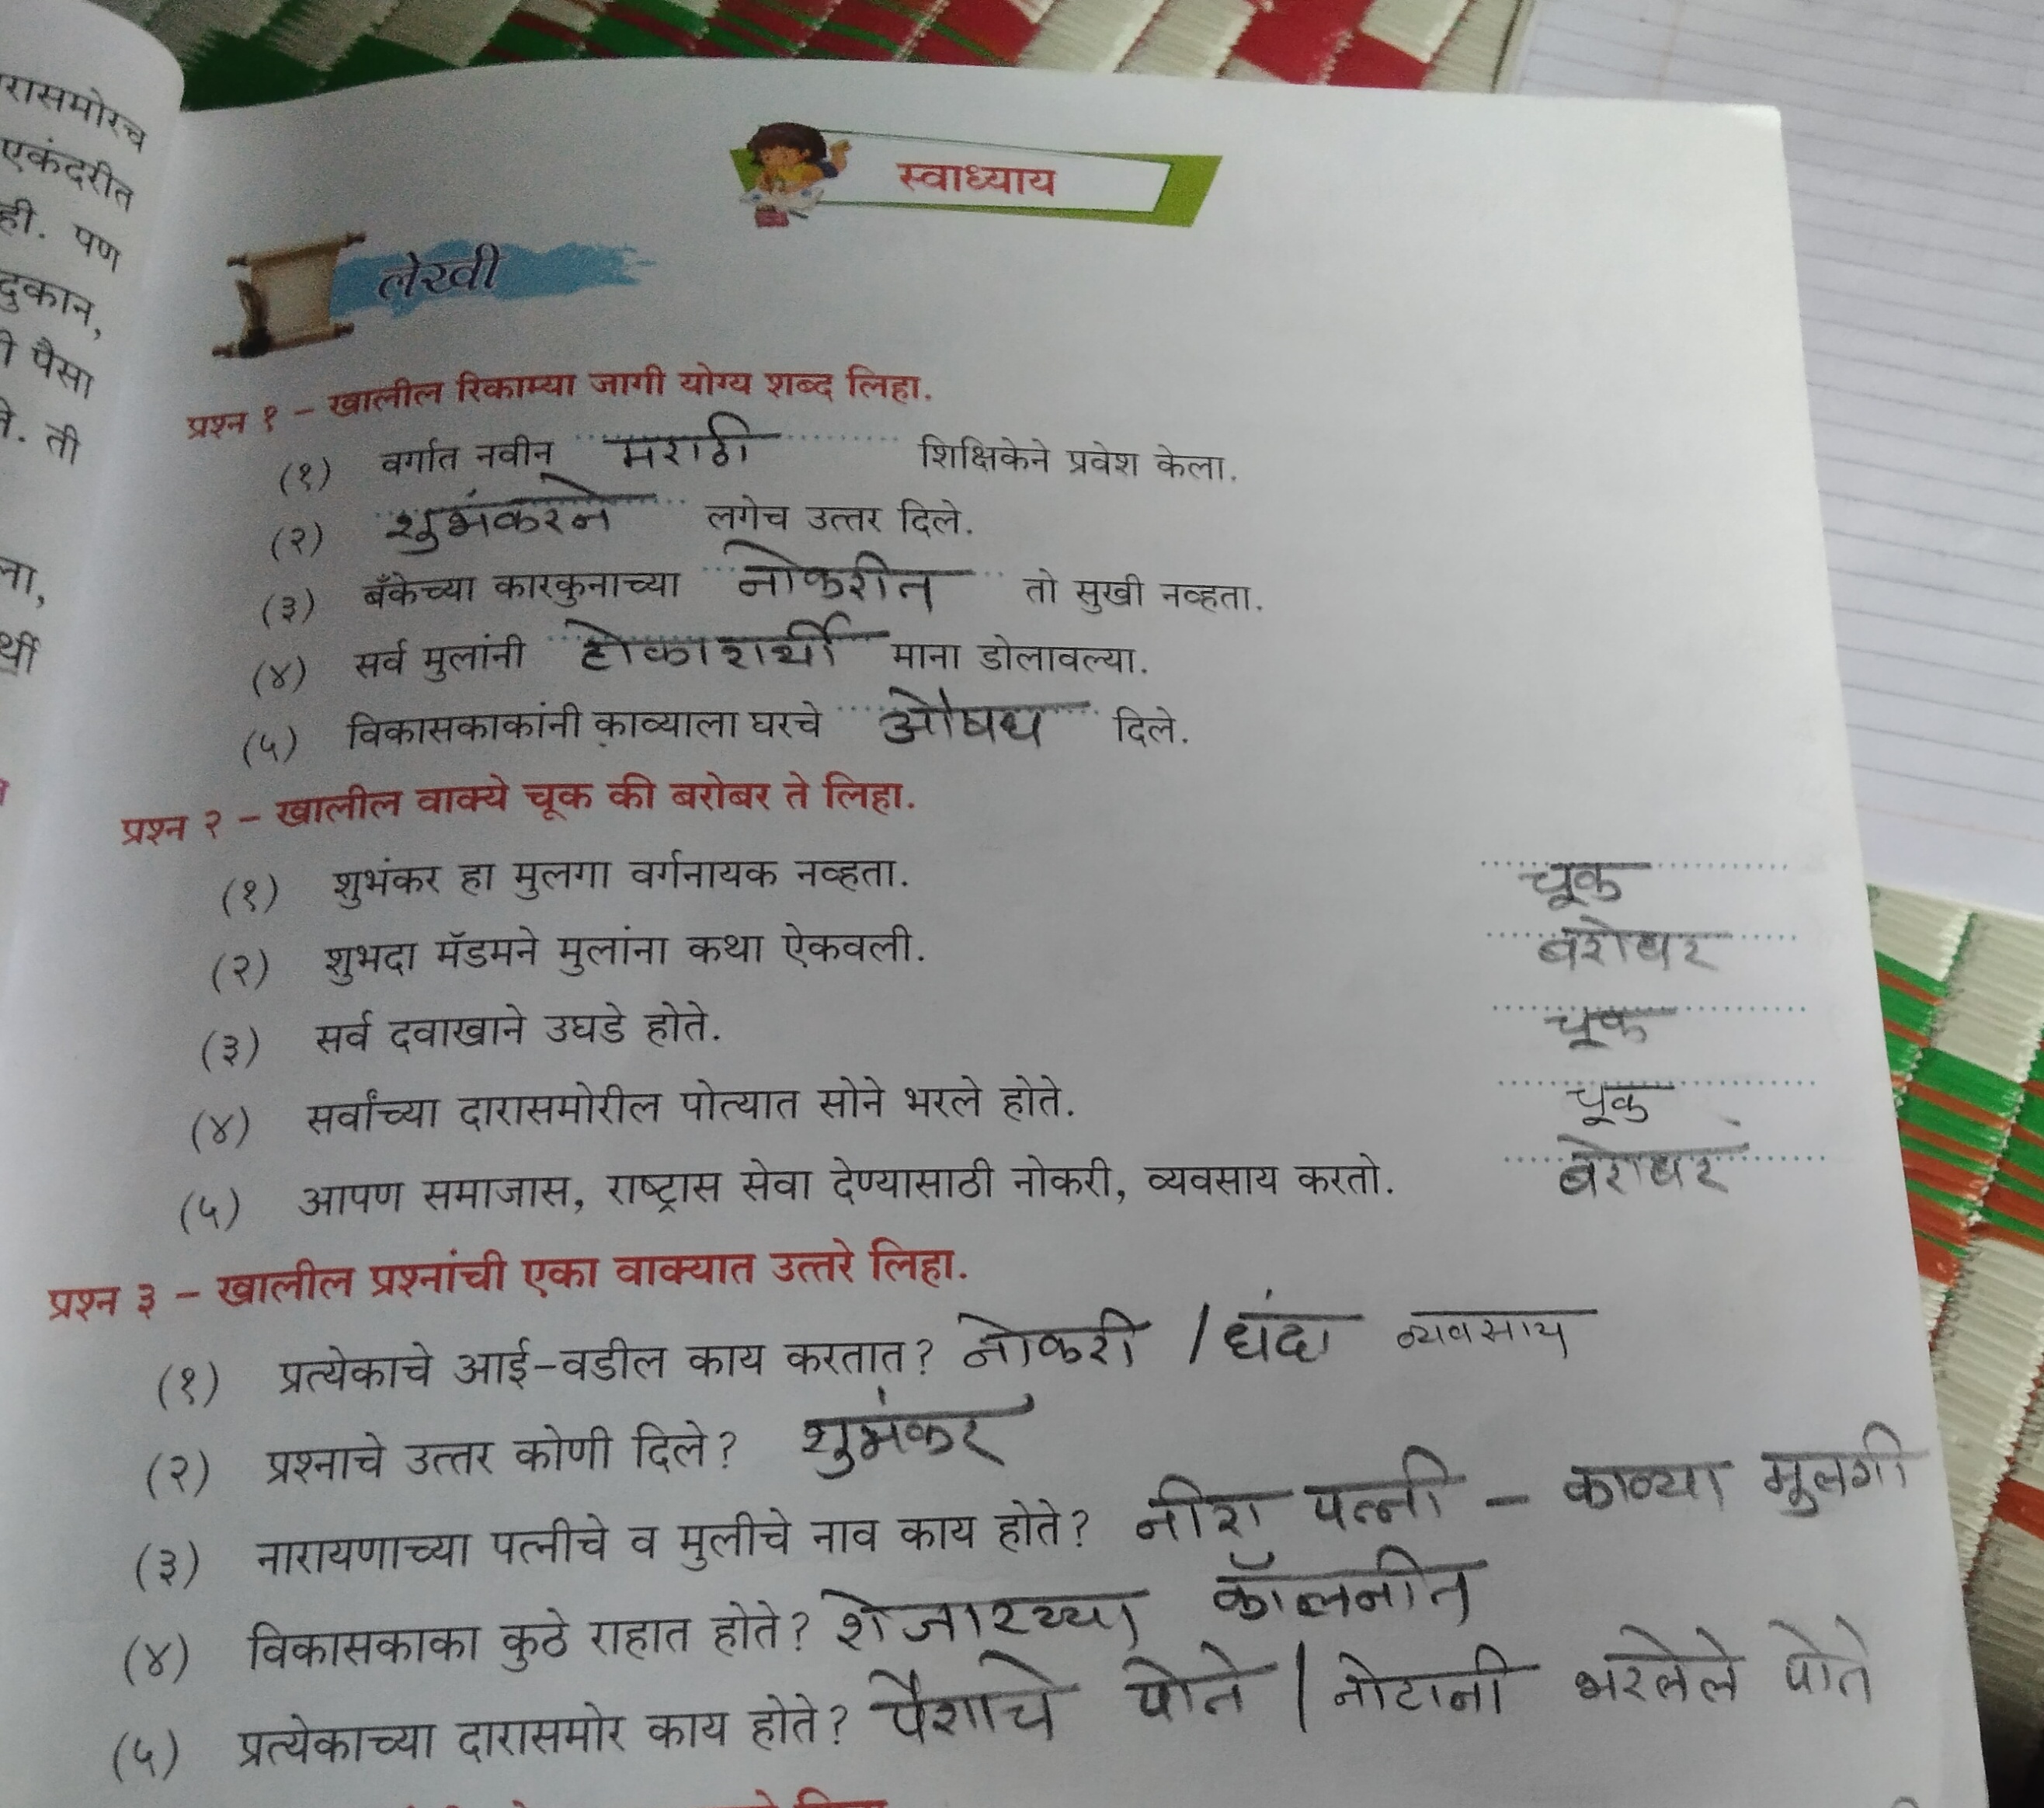 रासमोरच
एकंदरीत
ही. पण
दुकान,
पैसा
ती
स्वाध्याय
लेखी
प्रश्न १ – खालील रिकाम्या जागी योग्य शब्द लिहा.
(१) वर्गात नवीन मराठी शिक्षिकेने प्रवेश केला.
(२) शुभंकरने लगेच उत्तर दिले.
(३) बँकेच्या कारकुनाच्या नोकरीत तो सुखी नव्हता.
(४) सर्व मुलांनी होकारार्थी माना डोलावल्या.
(५) विकासकाकांनी काव्याला घरचे औषध दिले.
प्रश्न २ – खालील वाक्ये चूक की बरोबर ते लिहा.
(१) शुभंकर हा मुलगा वर्गनायक नव्हता. चूक
(२) शुभदा मॅडमने मुलांना कथा ऐकवली. बरोबर
(३) सर्व दवाखाने उघडे होते. चूक
(४) सर्वांच्या दारासमोरील पोत्यात सोने भरले होते. चूक
(५) आपण समाजास, राष्ट्रास सेवा देण्यासाठी नोकरी, व्यवसाय करतो. बरोबर
प्रश्न ३ – खालील प्रश्नांची एका वाक्यात उत्तरे लिहा.
(१) प्रत्येकाचे आई-वडील काय करतात? नोकरी / धंदा व्यवसाय
(२) प्रश्नाचे उत्तर कोणी दिले? शुभंकर
(३) नारायणाच्या पत्नीचे व मुलीचे नाव काय होते? नीरा पत्नी – काव्या मुलगी
(४) विकासकाका कुठे राहात होते? शेजारच्या कॉलनीत
(५) प्रत्येकाच्या दारासमोर काय होते? पैशाचे पोते / नोटानी भरलेले पोते